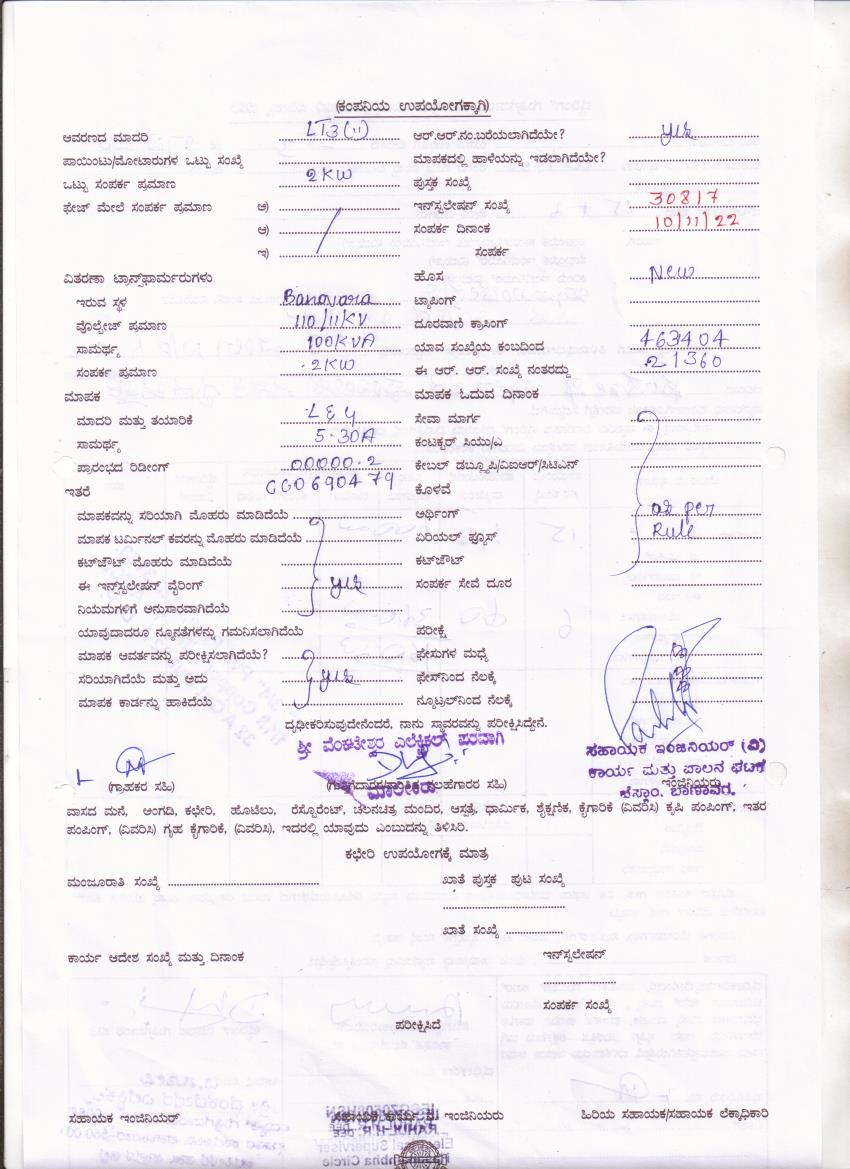 (ಕಂಪನಿಯ ಉಪಯೋಗಕ್ಕಾಗಿ)
ಆವರಣದ ಮಾದರಿ LT3(ii) ಆರ್.ಆರ್.ನಂ.ಬರೆಯಲಾಗಿದೆಯೇ? yes
ಪಾಯಿಂಟು/ಮೋಟಾರುಗಳ ಒಟ್ಟು ಸಂಖ್ಯೆ ಮಾಪಕದಲ್ಲಿ ಹಾಳೆಯನ್ನು ಇಡಲಾಗಿದೆಯೇ?
ಒಟ್ಟು ಸಂಪರ್ಕ ಪ್ರಮಾಣ 2KW ಪುಸ್ತಕ ಸಂಖ್ಯೆ
ಫೇಜ್ ಮೇಲೆ ಸಂಪರ್ಕ ಪ್ರಮಾಣ ಅ) ಇನ್‌ಸ್ಟಲೇಷನ್ ಸಂಖ್ಯೆ 30817
ಆ) ಸಂಪರ್ಕ ದಿನಾಂಕ 10/11/22
ಇ) ಸಂಪರ್ಕ
ವಿತರಣಾ ಟ್ರಾನ್ಸ್‌ಫಾರ್ಮರುಗಳು ಹೊಸ New
ಇರುವ ಸ್ಥಳ Banavara ಟ್ಯಾಪಿಂಗ್
ವೊಲ್ಟೇಜ್ ಪ್ರಮಾಣ 110/11KV ದೂರವಾಣಿ ಕ್ರಾಸಿಂಗ್
ಸಾಮರ್ಥ್ಯ 100KVA ಯಾವ ಸಂಖ್ಯೆಯ ಕಂಬದಿಂದ 463404
ಸಂಪರ್ಕ ಪ್ರಮಾಣ 2KW ಈ ಆರ್. ಆರ್. ಸಂಖ್ಯೆ ನಂತರದ್ದು 21360
ಮಾಪಕ ಮಾಪಕ ಓದುವ ದಿನಾಂಕ
ಮಾದರಿ ಮತ್ತು ತಯಾರಿಕೆ L&G ಸೇವಾ ಮಾರ್ಗ
ಸಾಮರ್ಥ್ಯ 5-30A ಕಂಟಕ್ಟರ್ ಸಿಯು/ಎ
ಪ್ರಾರಂಭದ ರಿಡೀಂಗ್ 00000.2 ಕೇಬಲ್ ಡಬ್ಲ್ಯೂಪಿ/ವಿಐಆರ್/ಸಿಟಿಎನ್
ಇತರೆ GG0690479 ಕೊಳವೆ
ಮಾಪಕವನ್ನು ಸರಿಯಾಗಿ ಮೊಹರು ಮಾಡಿದೆಯೆ ಅರ್ಥಿಂಗ್ as per
ಮಾಪಕ ಟರ್ಮಿನಲ್ ಕವರನ್ನು ಮೊಹರು ಮಾಡಿದೆಯೆ ಏರಿಯಲ್ ಫ್ಯೂಸ್ Rule
ಕಟ್‌ಔಟ್ ಮೊಹರು ಮಾಡಿದೆಯೆ ಕಟ್‌ಔಟ್
ಈ ಇನ್‌ಸ್ಟಲೇಷನ್ ವೈರಿಂಗ್ yes ಸಂಪರ್ಕ ಸೇವೆ ದೂರ
ನಿಯಮಗಳಿಗೆ ಅನುಸಾರವಾಗಿದೆಯೆ
ಯಾವುದಾದರೂ ನ್ಯೂನತೆಗಳನ್ನು ಗಮನಿಸಲಾಗಿದೆಯೆ ಪರೀಕ್ಷೆ
ಮಾಪಕ ಆವರ್ತವನ್ನು ಪರೀಕ್ಷಿಸಲಾಗಿದೆಯೆ? ಫೇಸುಗಳ ಮಧ್ಯೆ
ಸರಿಯಾಗಿದೆಯೆ ಮತ್ತು ಅದು yes ಫೇಸ್‌ನಿಂದ ನೆಲಕ್ಕೆ
ಮಾಪಕ ಕಾರ್ಡನ್ನು ಹಾಕಿದೆಯೆ ನ್ಯೂಟ್ರಲ್‌ನಿಂದ ನೆಲಕ್ಕೆ
ದೃಢೀಕರಿಸುವುದೇನೆಂದರೆ, ನಾನು ಸ್ಥಾವರವನ್ನು ಪರೀಕ್ಷಿಸಿದ್ದೇನೆ.
ಶ್ರೀ ವೆಂಕಟೇಶ್ವರ ಎಲೆಕ್ಟ್ರಿಕಲ್ಸ್ ಪರವಾಗಿ
ಸಹಾಯಕ ಇಂಜಿನಿಯರ್ (ವಿ)
ಕಾರ್ಯ ಮತ್ತು ಪಾಲನ ಘಟಕ
(ಗ್ರಾಹಕರ ಸಹಿ) ಮಾಲೀಕರು ಸಹಿ) ಇಂಜಿನಿಯರು
ಬಾಣಾವರ.
ವಾಸದ ಮನೆ, ಅಂಗಡಿ, ಕಛೇರಿ, ಹೊಟೆಲು, ರೆಸ್ಟೊರೆಂಟ್, ಚಲನಚಿತ್ರ ಮಂದಿರ, ಆಸ್ಪತ್ರೆ, ಧಾರ್ಮಿಕ, ಶೈಕ್ಷಣಿಕ, ಕೈಗಾರಿಕೆ (ವಿವರಿಸಿ) ಕೃಷಿ ಪಂಪಿಂಗ್, ಇತರ
ಪಂಪಿಂಗ್, (ವಿವರಿಸಿ) ಗೃಹ ಕೈಗಾರಿಕೆ, (ವಿವರಿಸಿ), ಇದರಲ್ಲಿ ಯಾವುದು ಎಂಬುದನ್ನು ತಿಳಿಸಿರಿ.
ಕಛೇರಿ ಉಪಯೋಗಕ್ಕೆ ಮಾತ್ರ
ಮಂಜೂರಾತಿ ಸಂಖ್ಯೆ ಖಾತೆ ಪುಸ್ತಕ ಪುಟ ಸಂಖ್ಯೆ
ಖಾತೆ ಸಂಖ್ಯೆ
ಕಾರ್ಯ ಆದೇಶ ಸಂಖ್ಯೆ ಮತ್ತು ದಿನಾಂಕ ಇನ್‌ಸ್ಟಲೇಷನ್
ಸಂಪರ್ಕ ಸಂಖ್ಯೆ
ಪರೀಕ್ಷಿಸಿದೆ
ಸಹಾಯಕ ಇಂಜಿನಿಯರ್ ಸಹಾಯಕ ಕಾರ್ಯ. ನಿ. ಇಂಜಿನಿಯರು ಹಿರಿಯ ಸಹಾಯಕ/ಸಹಾಯಕ ಲೆಕ್ಕಾಧಿಕಾರಿ